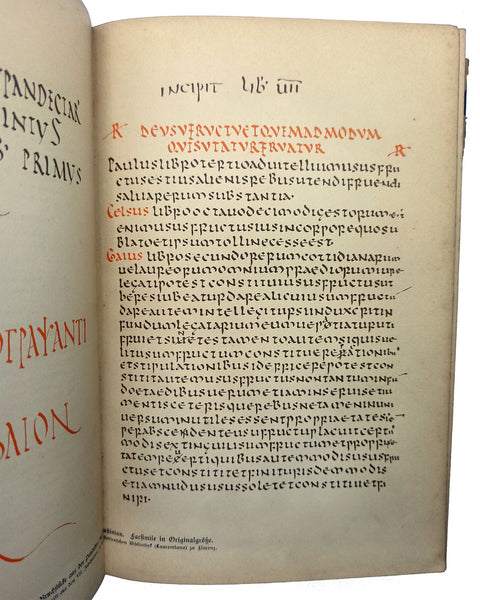 PANDECTAR
INIUS
B PRIMUS
ΟΓΡΑΨΑΝΤΙ
SALON
INCIPIT LIB VII
R DEUSUFRUCTUETQUEMADMODUM
QUISUTATURFRUATUR R
PAULUSLIBROTERTIOADUITELLIUMUSUSFRU
CTUSESTIUSALIENISREBUSUTENDIFRUENDI
SALUARERUMSUBSTANTIA.
CELSUSLIBROOCTAUODECIMODIGESTORUMEST
ENIMUSUSFRUCTUSIUSINCORPOREQUOSU
BLATOETIPSUMTOLLINECESSEEST.
GAIUSLIBROSECUNDORERUMCOTTIDIANARUM
UELAUREORUMOMNIUMPRAEDIORUMIURE
LEGATIPOTESTCONSTITUIUSUSFRUCTUSUT
HERESIUBEATURDAREALICUIUSUMFRUCTUM
DAREAUTEMINTELLEGITURSIINDUXERITIN
FUNDUMLEGATARIUMEUMUEPATIATURUTI
FRUIETSINETESTAMENTOAUTEMSIQUISUE
LITUSUMFRUCTUMCONSTITUEREPACTIONIBU
ETSTIPULATIONIBUSIDEFFICEREPOTESTCON
STITITAUTEMUSUSFRUCTUSNONTANTUMINFUN
DOETAEDIBUSUERUMETIAMINSERUISETIU
MENTISCETERISQUEREBUSNETAMENINUNI
UERSUMINUTILESESSENTPROPRIETATESSEM
PERABSCEDENTEUSUFRUCTUPLACUITCERTIS
MODISEXTINGUIUSUMFRUCTUMETPROPRIE
TATEMREUERTIQUIBUSAUTEMMODISUSUSFRU
CTUSETCONSTITITETFINITURISDEMMODIS
ETIAMNUDUSUSUSSOLETETCONSTITUIETFI
NIRI.
Facsimile in Originalgröße.
Bibliothek (Laurentiana) zu Florenz.